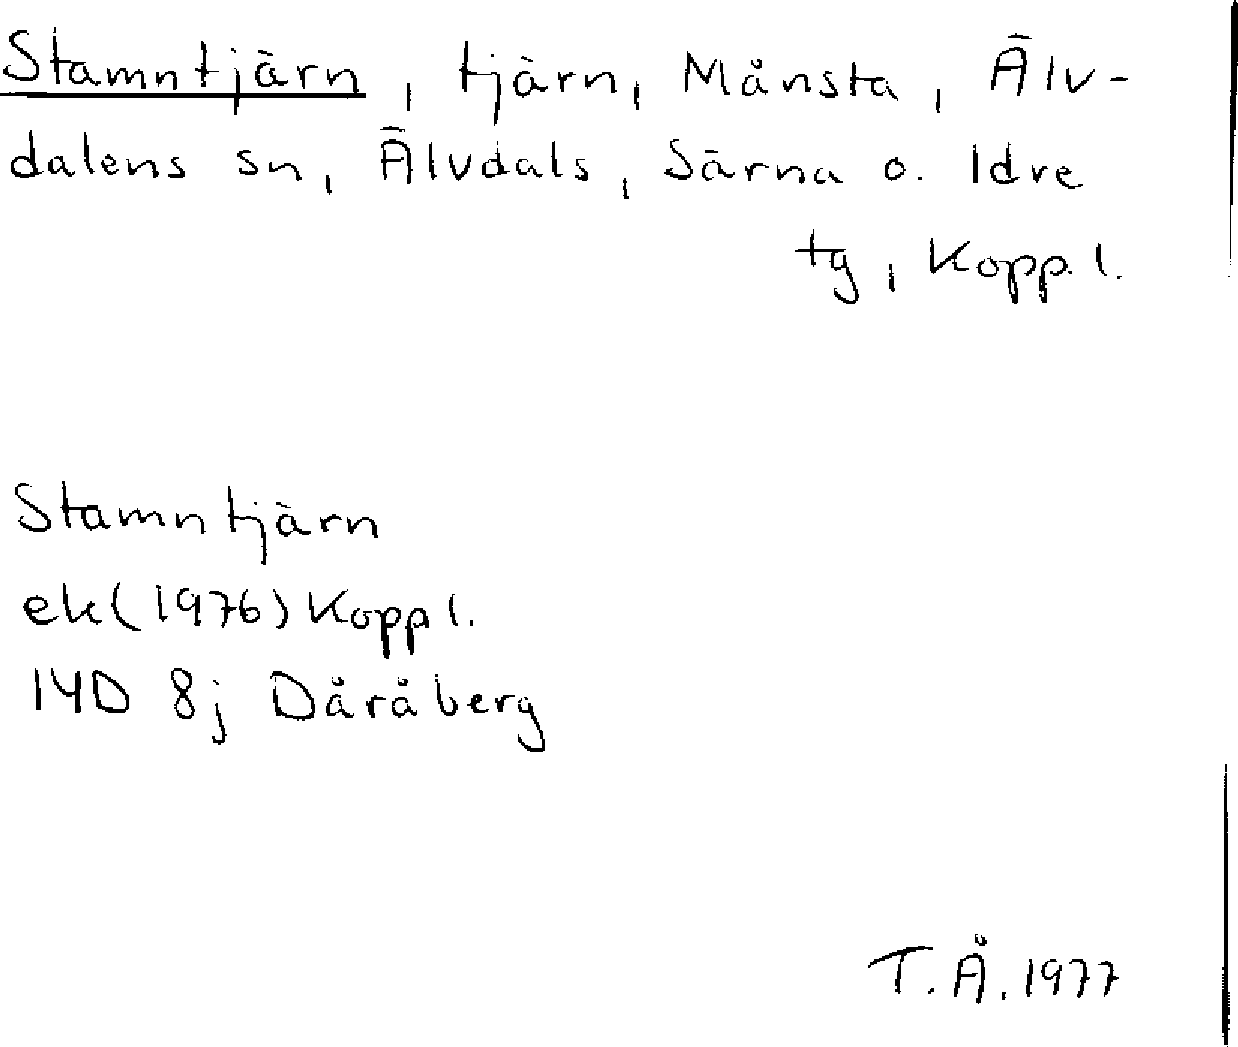 Stamntjärn, tjärn, Månsta, Älv-
dalens sn, Älvdals, Särna o. Idre
tg, Kopp. l.
Stamntjärn
ek(1976) Kopp l.
14D 8j Dåråberg
T. Å. 1977